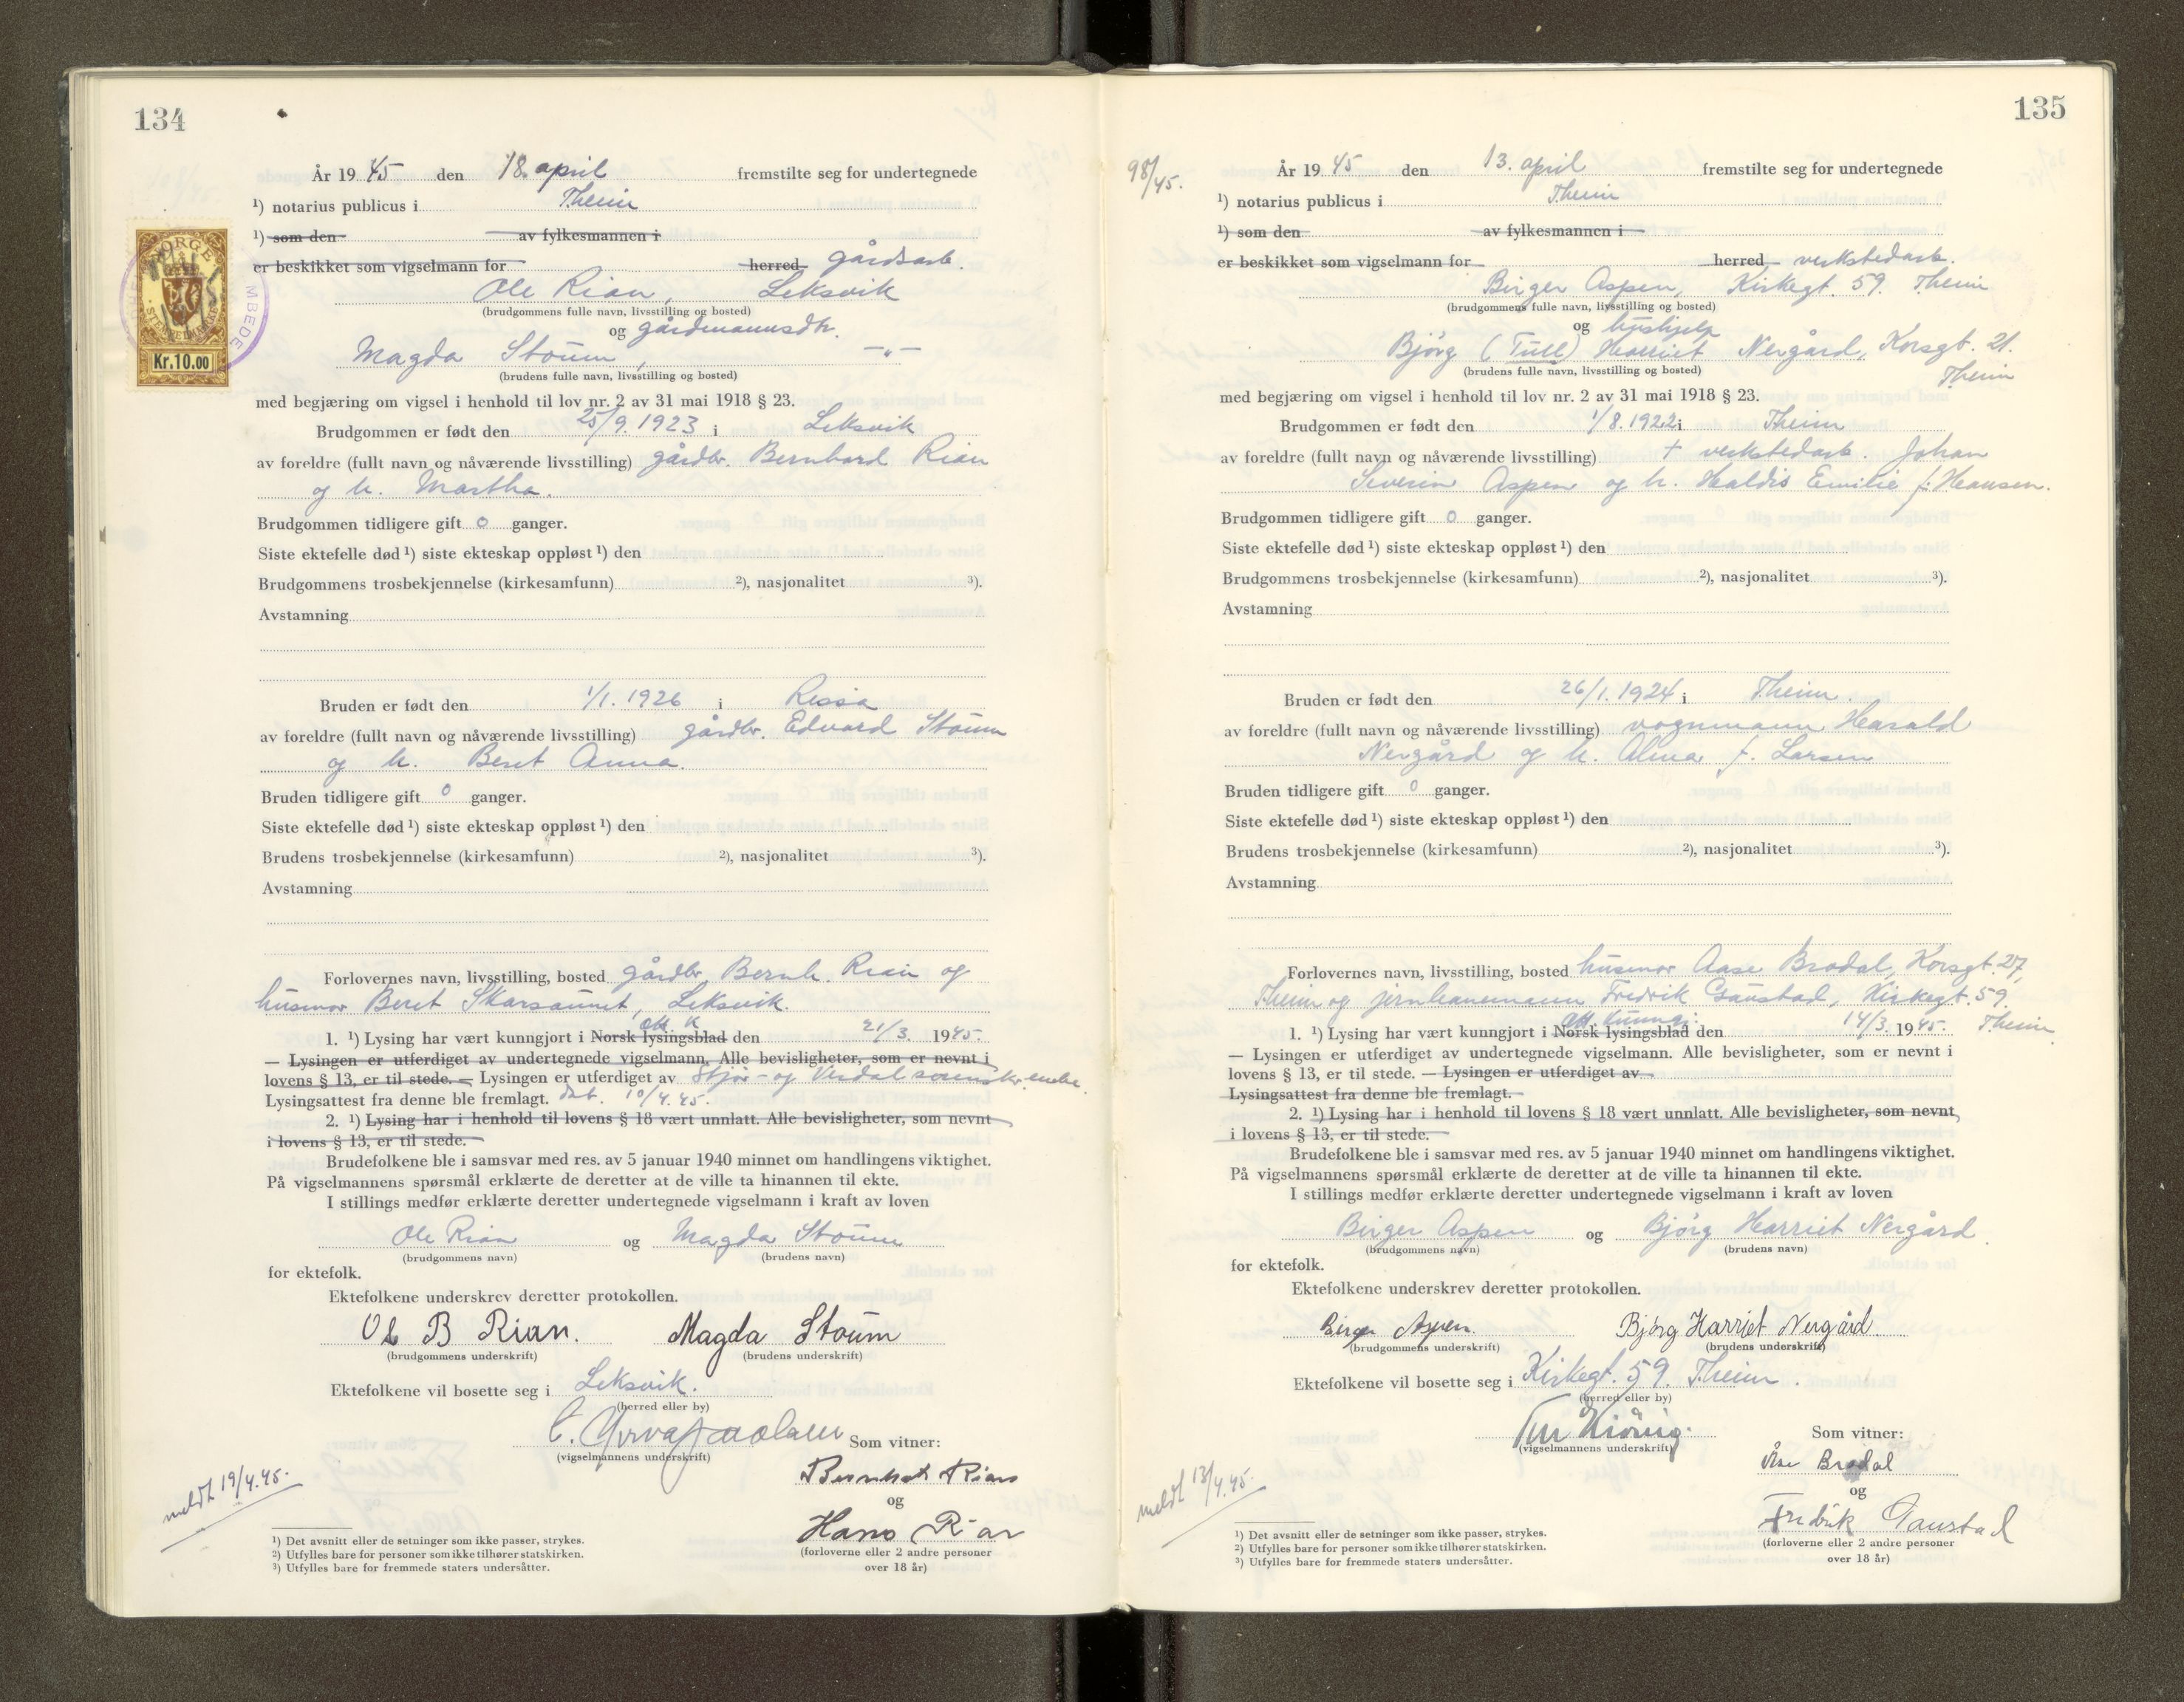 134
År 19 45 den 18. april fremstilte seg for undertegnede
¹) notarius publicus i Theim
¹) som den av fylkesmannen i
er beskikket som vigselmann for herred gårdsarb.
Ole Rian, Leksvik
(brudgommens fulle navn, livsstilling og bosted)
og gårdmannsdtr.
Magda Stoum, —"—
(brudens fulle navn, livsstilling og bosted)
NORGE
STEMPELMERKE
Kr.10.00
med begjæring om vigsel i henhold til lov nr. 2 av 31 mai 1918 § 23.
Brudgommen er født den 25/9. 1923 i Leksvik
av foreldre (fullt navn og nåværende livsstilling) gårdbr. Bernhard Rian
og h. Martha.
Brudgommen tidligere gift 0 ganger.
Siste ektefelle død ¹) siste ekteskap oppløst ¹) den
Brudgommens trosbekjennelse (kirkesamfunn) ²), nasjonalitet ³).
Avstamning
Bruden er født den 1/1. 1926 i Rissa
av foreldre (fullt navn og nåværende livsstilling) gårdbr. Edvard Stoum
og h. Beret Anna.
Bruden tidligere gift 0 ganger.
Siste ektefelle død ¹) siste ekteskap oppløst ¹) den
Brudens trosbekjennelse (kirkesamfunn) ²), nasjonalitet ³).
Avstamning
Forlovernes navn, livsstilling, bosted gårdbr. Bernh. Rian og
husmor Beret Skarsaunet, Leksvik.
1. ¹) Lysing har vært kunngjort i Norsk lysingsblad den 21/3. 1945.
— Lysingen er utferdiget av undertegnede vigselmann. Alle bevisligheter, som er nevnt i
lovens § 13, er til stede. — Lysingen er utferdiget av Stjør- og Verdal sorenskr.embe
Lysingsattest fra denne ble fremlagt. dat. 10/4.45.
2. ¹) Lysing har i henhold til lovens § 18 vært unnlatt. Alle bevisligheter, som nevnt
i lovens § 13, er til stede.
Brudefolkene ble i samsvar med res. av 5 januar 1940 minnet om handlingens viktighet.
På vigselmannens spørsmål erklærte de deretter at de ville ta hinannen til ekte.
I stillings medfør erklærte deretter undertegnede vigselmann i kraft av loven
Ole Rian og Magda Stoum
(brudgommens navn) (brudens navn)
for ektefolk.
Ektefolkene underskrev deretter protokollen.
Ole B Rian. Magda Stoum
(brudgommens underskrift) (brudens underskrift)
Ektefolkene vil bosette seg i Leksvik.
(herred eller by)
Som vitner:
(vigselmannens underskrift)
Bernhat Rian
og
Hans Rian
(forloverne eller 2 andre personer
over 18 år)
meldt 19/4.45.
¹) Det avsnitt eller de setninger som ikke passer, strykes.
²) Utfylles bare for personer som ikke tilhører statskirken.
³) Utfylles bare for fremmede staters undersåtter.
135
98/45.
År 19 45 den 13. april fremstilte seg for undertegnede
¹) notarius publicus i Theim
¹) som den av fylkesmannen i
er beskikket som vigselmann for herred verkstedarb.
Birger Aspen, Kirkegt. 59. Theim
(brudgommens fulle navn, livsstilling og bosted)
og hushjelp
Bjørg (Tull) Harriet Nergård, Korsgt. 21.
Theim
(brudens fulle navn, livsstilling og bosted)
med begjæring om vigsel i henhold til lov nr. 2 av 31 mai 1918 § 23.
Brudgommen er født den 1/8. 1922 i Theim
av foreldre (fullt navn og nåværende livsstilling) + verkstedarb. Johan
Severin Aspen og h. Haldis Emilie f. Hansen.
Brudgommen tidligere gift 0 ganger.
Siste ektefelle død ¹) siste ekteskap oppløst ¹) den
Brudgommens trosbekjennelse (kirkesamfunn) ²), nasjonalitet ³).
Avstamning
Bruden er født den 26/1. 1924 i Theim.
av foreldre (fullt navn og nåværende livsstilling) vognmann Harald
Nergård og h. Alma f. Larsen
Bruden tidligere gift 0 ganger.
Siste ektefelle død ¹) siste ekteskap oppløst ¹) den
Brudens trosbekjennelse (kirkesamfunn) ²), nasjonalitet ³).
Avstamning
Forlovernes navn, livsstilling, bosted husmor Aase Brodal, Korsgt. 27,
Theim og jernbanemann Fredrik Gaustad, Kirkegt. 59,
Theim
1. ¹) Lysing har vært kunngjort i Norsk lysingsblad den 14/3. 1945.
— Lysingen er utferdiget av undertegnede vigselmann. Alle bevisligheter, som er nevnt i
lovens § 13, er til stede. — Lysingen er utferdiget av
Lysingsattest fra denne ble fremlagt.
2. ¹) Lysing har i henhold til lovens § 18 vært unnlatt. Alle bevisligheter, som nevnt
i lovens § 13, er til stede.
Brudefolkene ble i samsvar med res. av 5 januar 1940 minnet om handlingens viktighet.
På vigselmannens spørsmål erklærte de deretter at de ville ta hinannen til ekte.
I stillings medfør erklærte deretter undertegnede vigselmann i kraft av loven
Birger Aspen og Bjørg Harriet Nergård.
(brudgommens navn) (brudens navn)
for ektefolk.
Ektefolkene underskrev deretter protokollen.
Birger Aspen. Bjørg Harriet Nergård
(brudgommens underskrift) (brudens underskrift)
Ektefolkene vil bosette seg i Kirkegt. 59. Theim.
(herred eller by)
Som vitner:
(vigselmannens underskrift)
Åse Brodal
og
Fredrik Gaustad
(forloverne eller 2 andre personer
over 18 år)
meldt 13/4.45.
¹) Det avsnitt eller de setninger som ikke passer, strykes.
²) Utfylles bare for personer som ikke tilhører statskirken.
³) Utfylles bare for fremmede staters undersåtter.